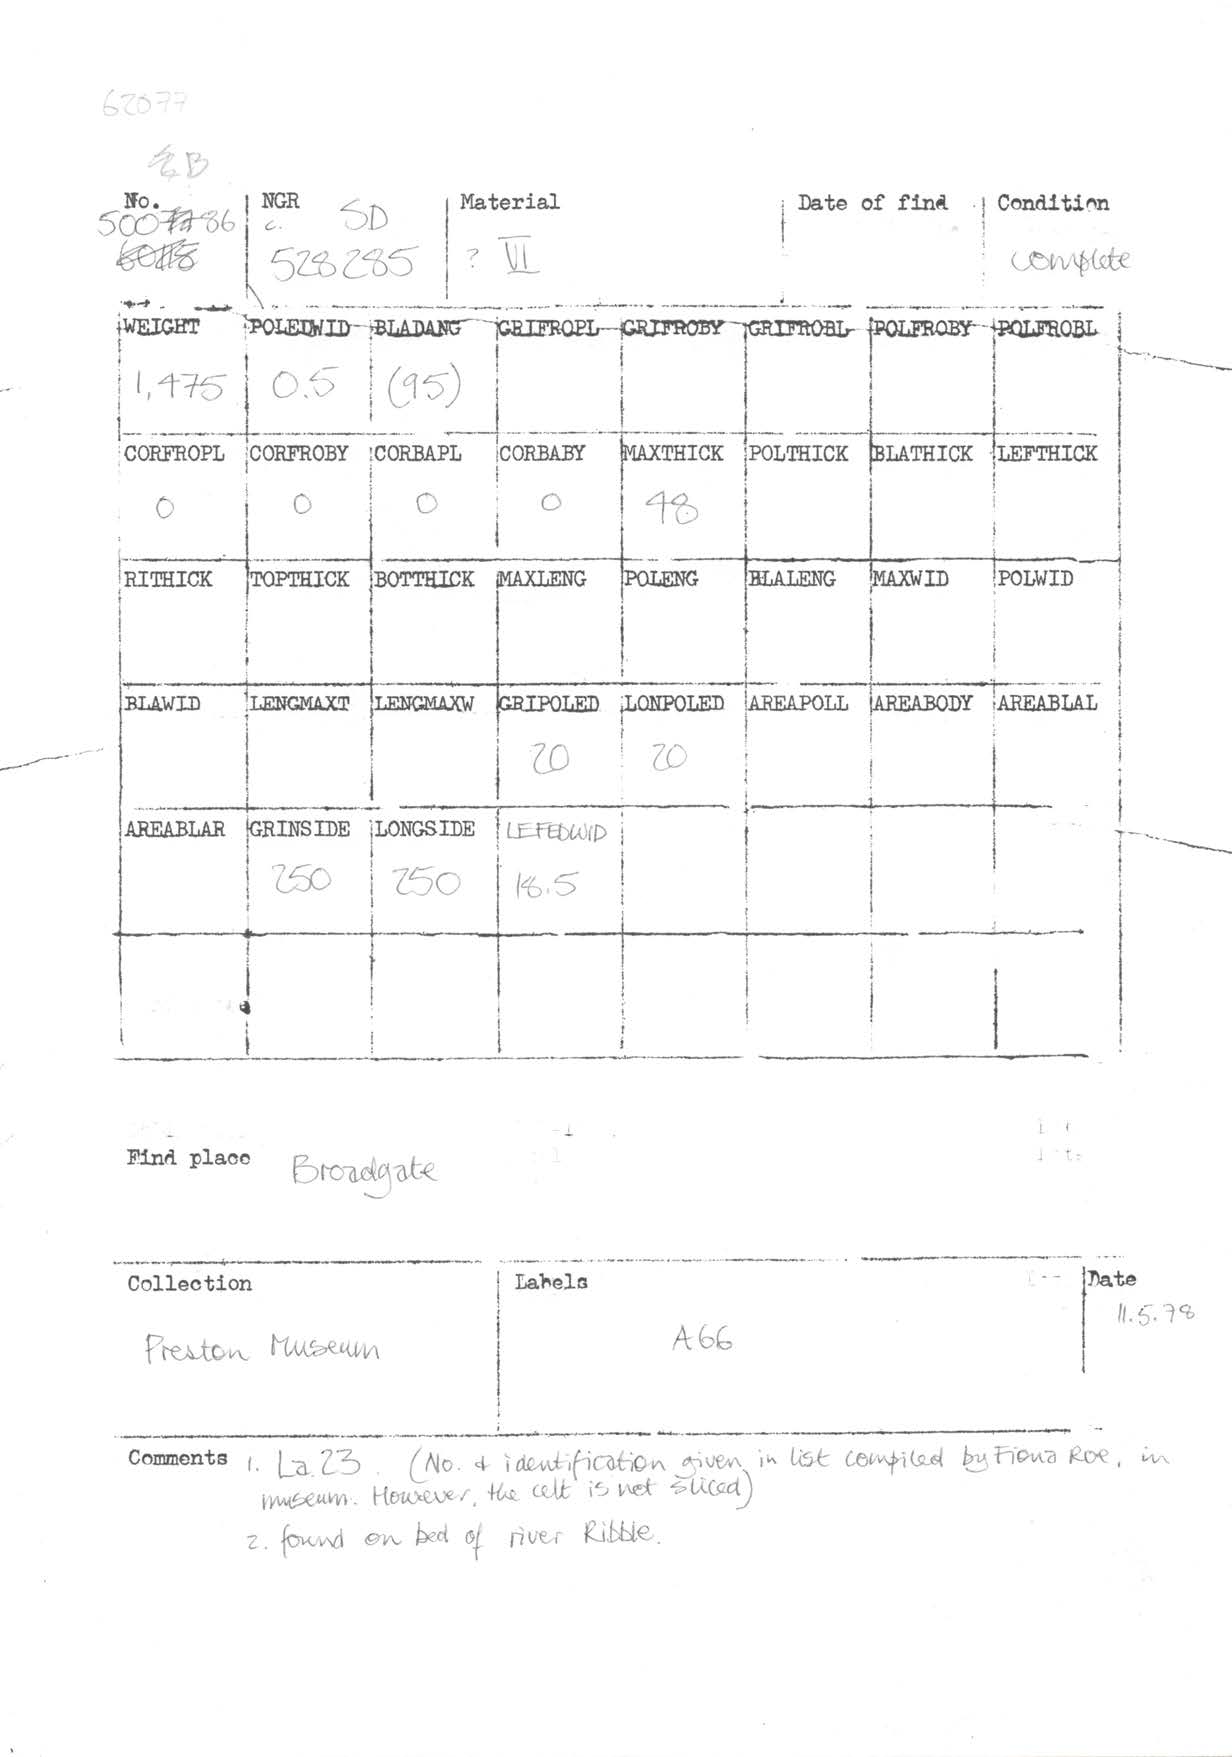 62077
No. NGR Material Date of find Condition
c. SD
500 86 528285 ? VI complete
WEIGHT POLEDWID BLADANG GRIFROPL GRIFROBY GRIFROBL POLFROBY POLFROBL
1,475 0.5 (95)
CORFROPL CORFROBY CORBAPL CORBABY MAXTHICK POLTHICK BLATHICK LEFTHICK
0 0 0 0 48
RITHICK TOPTHICK BOTTHICK MAXLENG POLENG BLALENG MAXWID POLWID
BLAWID LENGMAXT LENGMAXW GRIPOLED LONPOLED AREAPOLL AREABODY AREABLAL
20 20
AREABLAR GRINSIDE LONGSIDE LEFEDWID
250 250 18.5
Find place Broadgate
Collection Labels Date
11.5.78
Preston Museum A66
Comments 1. La.23. (No. & identification given in list compiled by Fiona Roe, in
museum. However, the celt is not sliced)
2. found on bed of river Ribble.